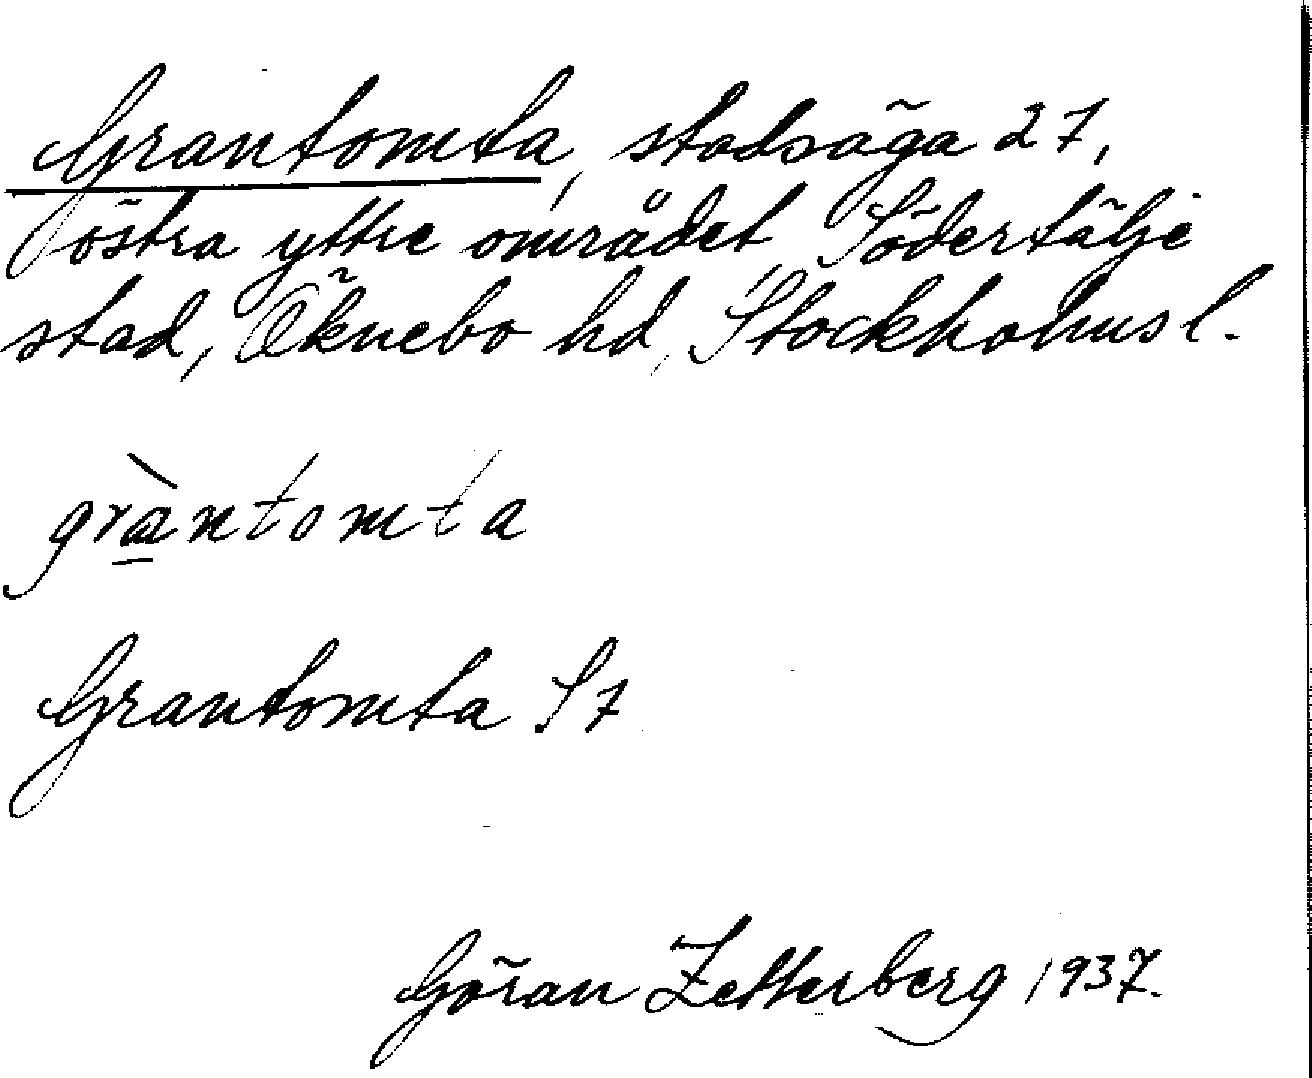 Grantomta, stadsäga 27,
östra yttre området, Södertälje
stad, Öknebo hd, Stockholms l.
gràntomta
Grantomta S7
Göran Zetterberg 1937.